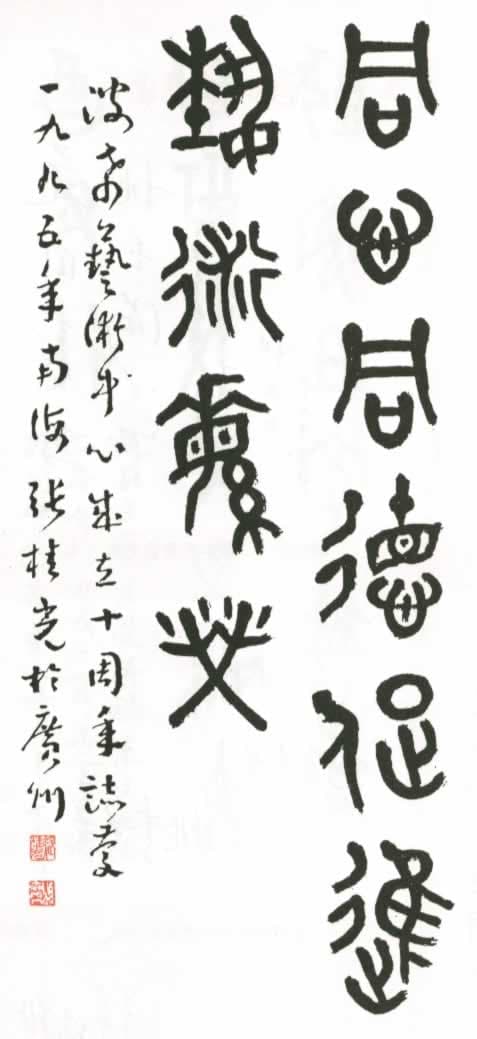 同心同德促進
藝術繁榮
藝術中心成立十周年誌慶
一九九五年南海張桂光於廣州